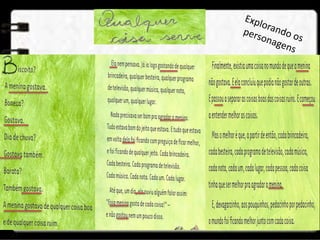 Qualquer
coisa serve
Explorando os
personagens
Biscoito?
A menina gostava.
Boneca?
Gostava.
Dia de chuva?
Gostava também.
Barata?
Também gostava.
A menina gostava de qualquer coisa boa
e de qualquer coisa ruim.
Ela nem pensava. Já ia logo gostando de qualquer
brincadeira, qualquer besteira, qualquer programa
de televisão, qualquer música, qualquer nota,
qualquer um, qualquer lugar.
Nada precisava ser bom pra agradar a menina.
Tudo estava bom do jeito que estava. E tudo que estava
em volta dela foi ficando com preguiça de ficar melhor,
e foi ficando de qualquer jeito. Cada brincadeira.
Cada besteira. Cada programa de televisão.
Cada música. Cada nota. Cada um. Cada lugar.
Até que, um dia, ela ouviu alguém falar assim:
"Essa menina gosta de cada coisa!" –
e não gostou nem um pouco disso.
Finalmente, existia uma coisa no mundo de que a menina
não gostava. E ela concluiu que podia não gostar de outras.
E passou a separar as coisas boas das coisas ruins. E começou
a entender melhor as coisas.
Mas o melhor é que, a partir de então, cada brincadeira,
cada besteira, cada programa de televisão, cada música,
cada nota, cada um, cada lugar, cada pessoa, cada coisa
tinha que ser melhor pra agradar a menina.
E, devagarinho, aos pouquinhos, pedacinho por pedacinho,
o mundo foi ficando melhor junto com cada coisa.